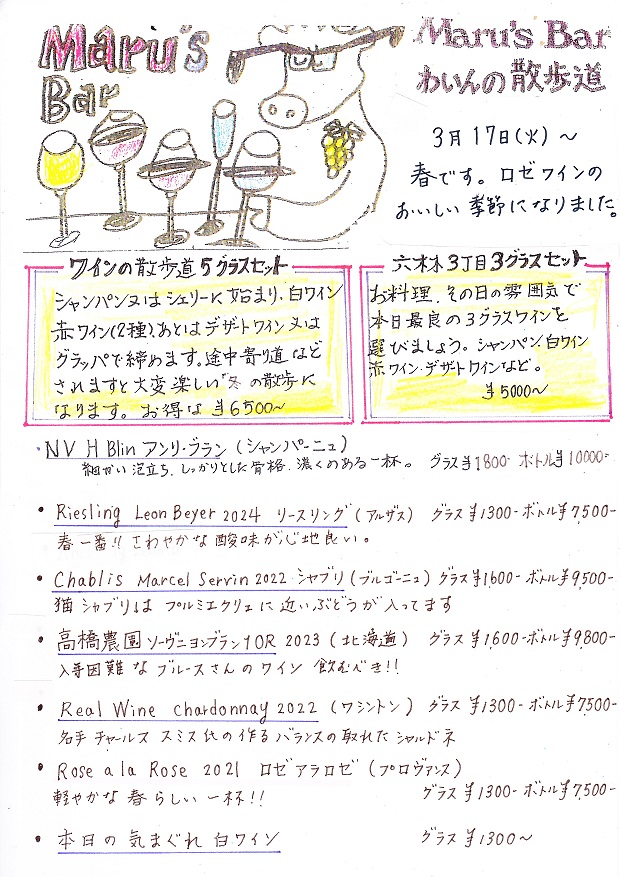 Maru's
Bar
Maru's Bar
わいんの散歩道
3月17日(火)~
春です。ロゼワインの
おいしい季節になりました。
ワインの散歩道5グラスセット
シャンパン又はシェリーに始まり、白ワイン
赤ワイン(2種)、あとはデザートワイン又は
グラッパで締めます。途中寄り道など
されますと大変楽しい"冬の散歩に
なります。お得な ¥6500~
六本木3丁目3グラスセット
お料理、その日の雰囲気で
本日最良の3グラスワインを
選びましょう。シャンパン、白ワイン
赤ワイン・デザートワインなど。
¥5000~
・NV H Blin アンリ・ブラン(シャンパーニュ)
細かい泡立ち、しっかりとした骨格、濃くのある一杯。 グラス¥1800- ボトル¥10000-
• Riesling Leon Beyer 2024 リースリング(アルザス) グラス¥1300-ボトル¥7,500-
春一番!! さわやかな酸味が心地良い。
• Chablis Marcel Servin 2022 シャブリ(ブルゴーニュ) グラス¥1600-ボトル¥9,500-
猫シャブリは プルミエクリュに近いぶどうが入ってます
• 高橋農園 ソーヴニヨンブラン10R 2023 (北海道) グラス¥1,600-ボトル¥9,800-
入手困難なブルースさんのワイン 飲むべき!!
• Real Wine chardonnay 2022 (ワシントン) グラス¥1300-ボトル¥7,500-
名手チャールズ スミス氏の作るバランスの取れたシャルドネ
• Rose a la Rose 2021 ロゼアラロゼ(プロヴァンス)
軽やかな春らしい一杯!! グラス¥1300-ボトル¥7,500-
• 本日の気まぐれ白ワイン グラス¥1300~